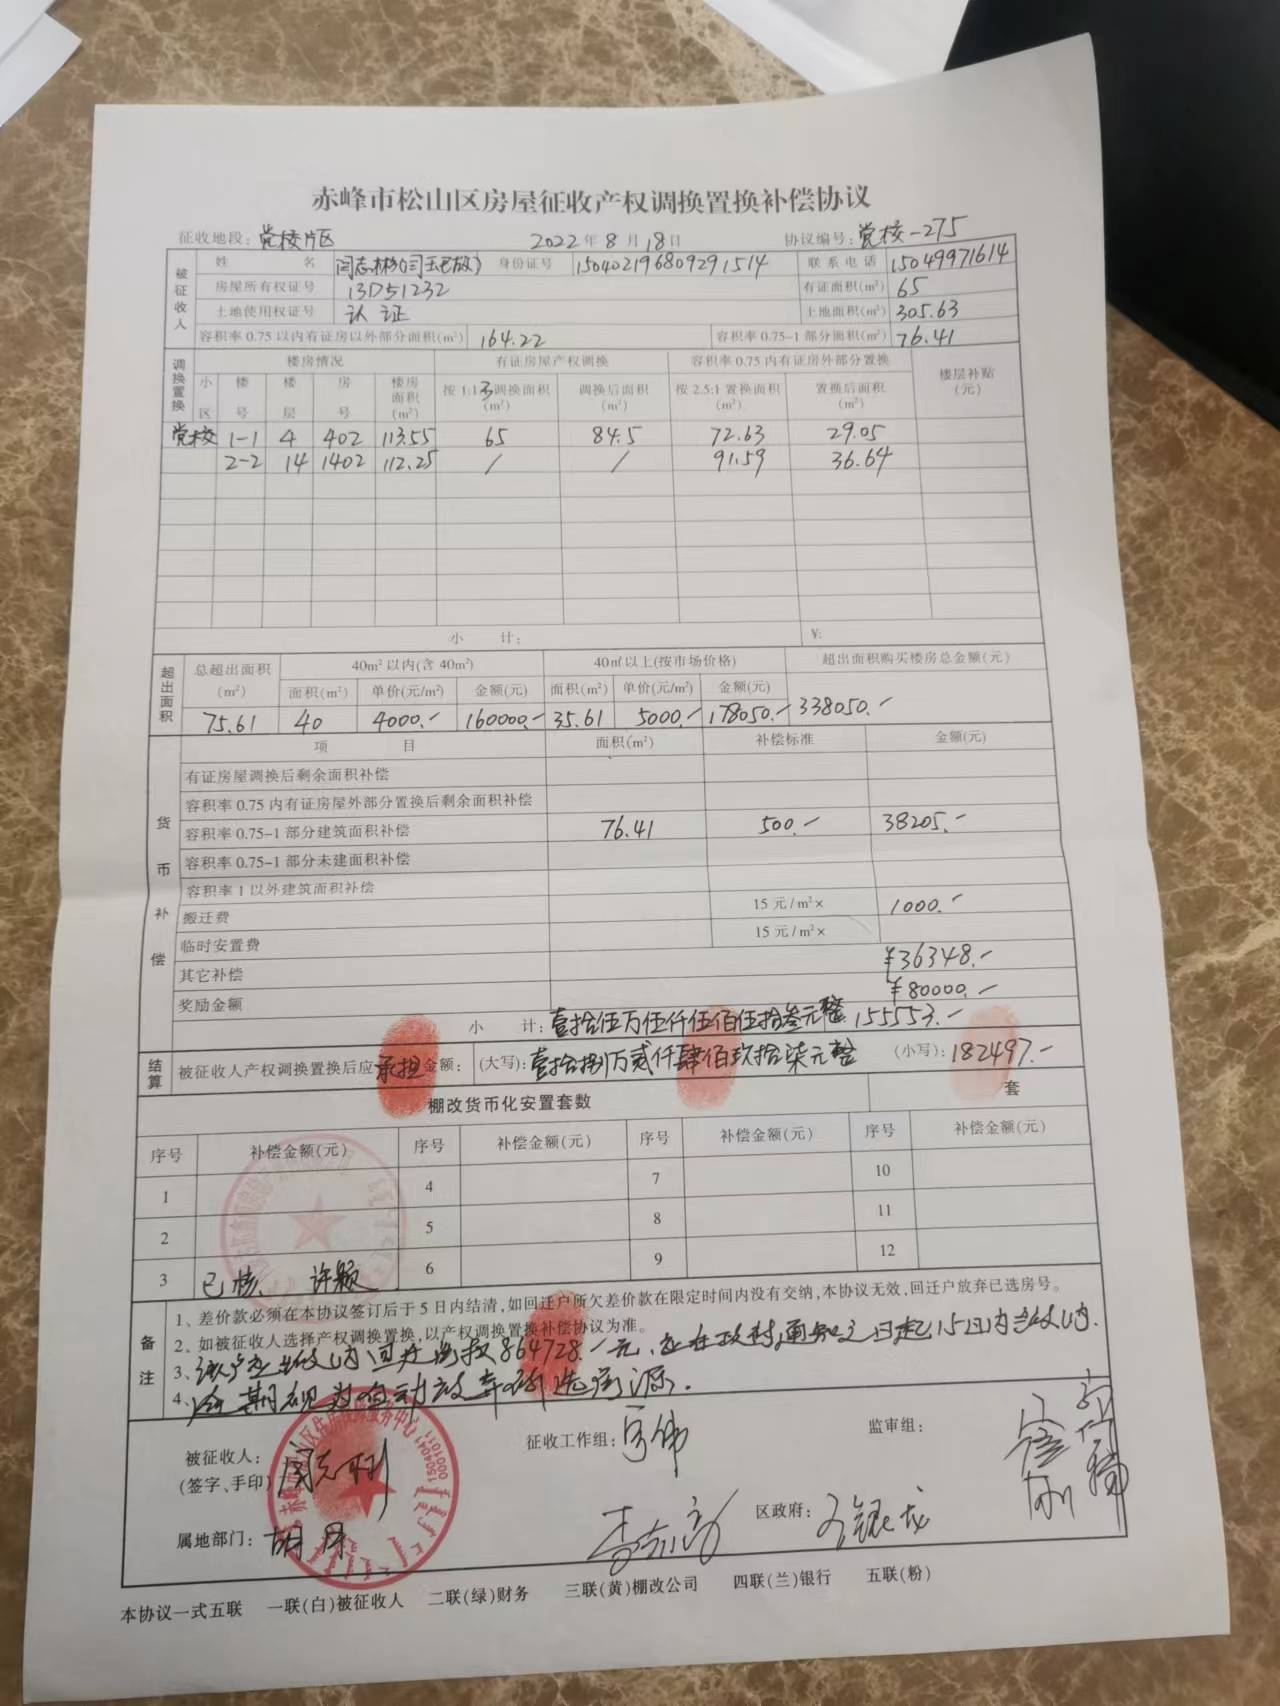 赤峰市松山区房屋征收产权调换置换补偿协议
征收地段：党校片区 2022年8月18日 协议编号：党校-275
被征收人
姓 名 闫志彬 身份证号 150402196809291514 联系电话 15049971614
房屋所有权证号 13D51232 有证面积(m²) 65
土地使用权证号 认证 土地面积(m²) 305.63
容积率 0.75 以内有证房以外部分面积(m²) 164.22 容积率 0.75-1 部分面积(m²) 76.41
调换置换
楼房情况 有证房屋产权调换 容积率 0.75 内有证房外部分置换 楼层补贴(元)
小区 楼号 楼层 房号 楼房面积(m²) 按 1:1.3调换面积(m²) 调换后面积(m²) 按 2.5:1 置换面积(m²) 置换后面积(m²)
党校 1-1 4 402 113.55 65 84.5 72.63 29.05
2-2 14 1402 112.25 / / 91.59 36.64
小 计： ¥:
超出面积
总超出面积(m²) 40m² 以内(含 40m²) 40㎡以上(按市场价格) 超出面积购买楼房总金额(元)
面积(m²) 单价(元/m²) 金额(元) 面积(m²) 单价(元/m²) 金额(元)
75.61 40 4000.- 160000.- 35.61 5000.- 178050.- 338050.-
货币补偿
项 目 面积(m²) 补偿标准 金额(元)
有证房屋调换后剩余面积补偿
容积率 0.75 内有证房屋外部分置换后剩余面积补偿
容积率 0.75-1 部分建筑面积补偿 76.41 500.- 38205.-
容积率 0.75-1 部分未建面积补偿
容积率 1 以外建筑面积补偿
搬迁费 15 元/m²× 1000.-
临时安置费 15 元/m²×
其它补偿 ¥36348.-
奖励金额 ¥80000.-
小 计：壹拾伍万伍仟伍佰伍拾叁元整 155553.-
结算 被征收人产权调换置换后应承担金额： (大写)：壹拾捌万贰仟肆佰玖拾柒元整 (小写)：182497.-
棚改货币化安置套数 套
序号 补偿金额(元) 序号 补偿金额(元) 序号 补偿金额(元) 序号 补偿金额(元)
1 4 7 10
2 5 8 11
3 已核 许颖 6 9 12
备注
1、差价款必须在本协议签订后于 5 日内结清，如回迁户所欠差价款在限定时间内没有交纳，本协议无效，回迁户放弃已选房号。
2、如被征收人选择产权调换置换，以产权调换置换补偿协议为准。
3、该户应缴纳回迁房款864728.-元，应在政府通知之日起15日内缴纳.
4、逾期视为自动放弃所选房源.
被征收人：(签字、手印) 征收工作组： 监审组：
属地部门：胡丹 区政府：
本协议一式五联 一联(白)被征收人 二联(绿)财务 三联(黄)棚改公司 四联(兰)银行 五联(粉)